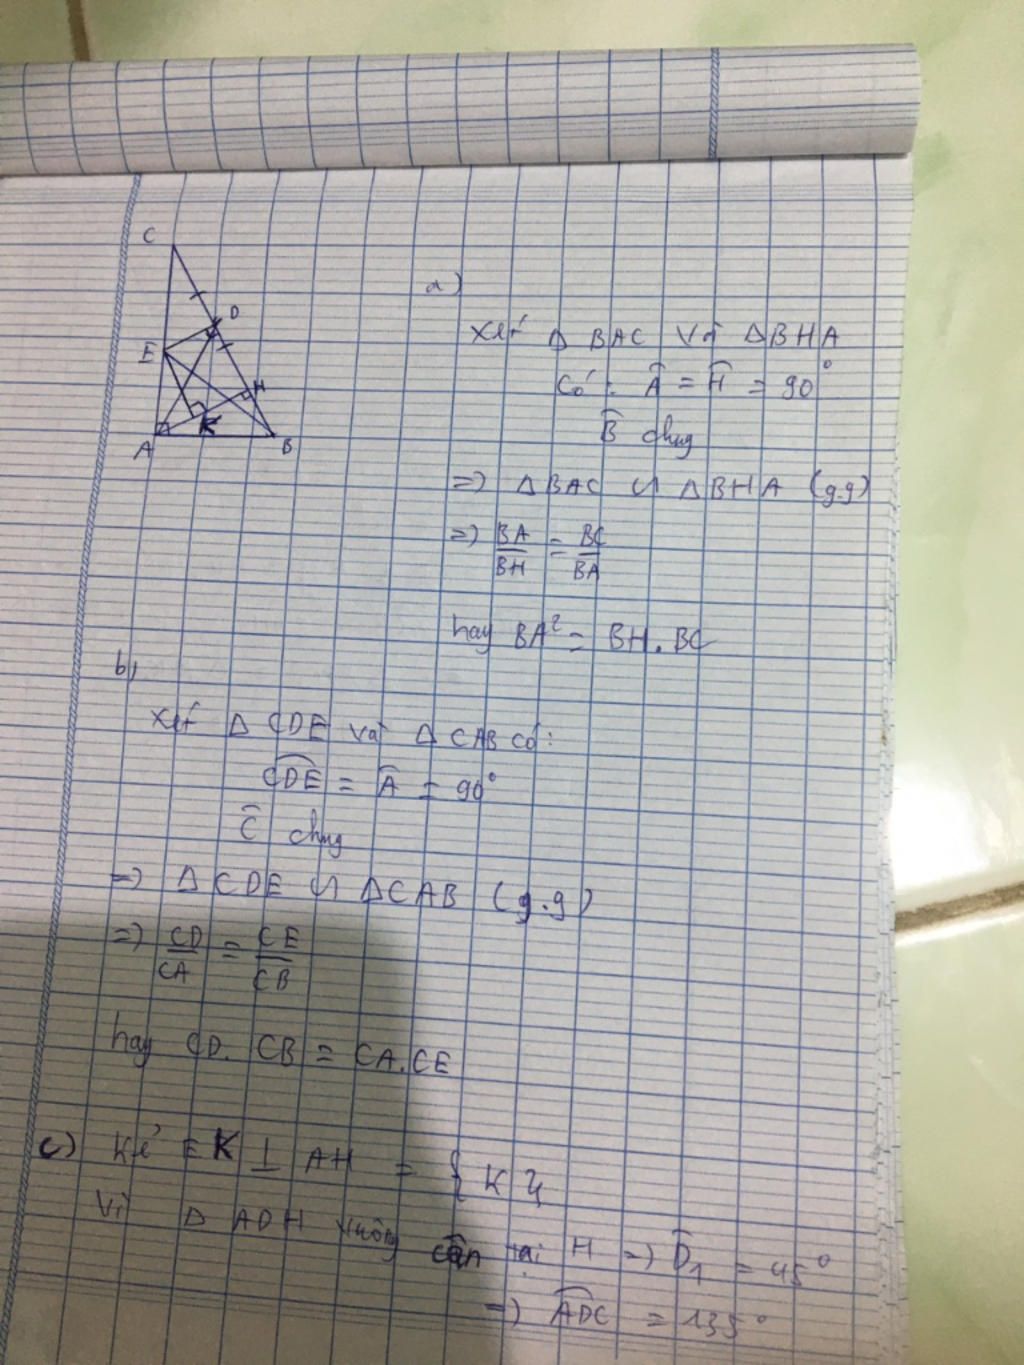 C
D
E
H
K
A
B
a)
Xét Δ BAC và ΔBHA
Có: Â = Ĥ = 90°
B̂ chung
=) ΔBAC ∽ ΔBHA (g.g)
=) BA/BH = BC/BA
hay BA² = BH.BC
b)
Xét Δ CDE và Δ CAB có:
CDE = Â = 90°
Ĉ chung
=) ΔCDE ∽ ΔCAB (g.g)
=) CD/CA = CE/CB
hay CD.CB = CA.CE
c) Kẻ EK ⊥ AH = {K}
Vì Δ ADH vuông cân tại H =) D̂₁ = 45°
=) ADC = 135°